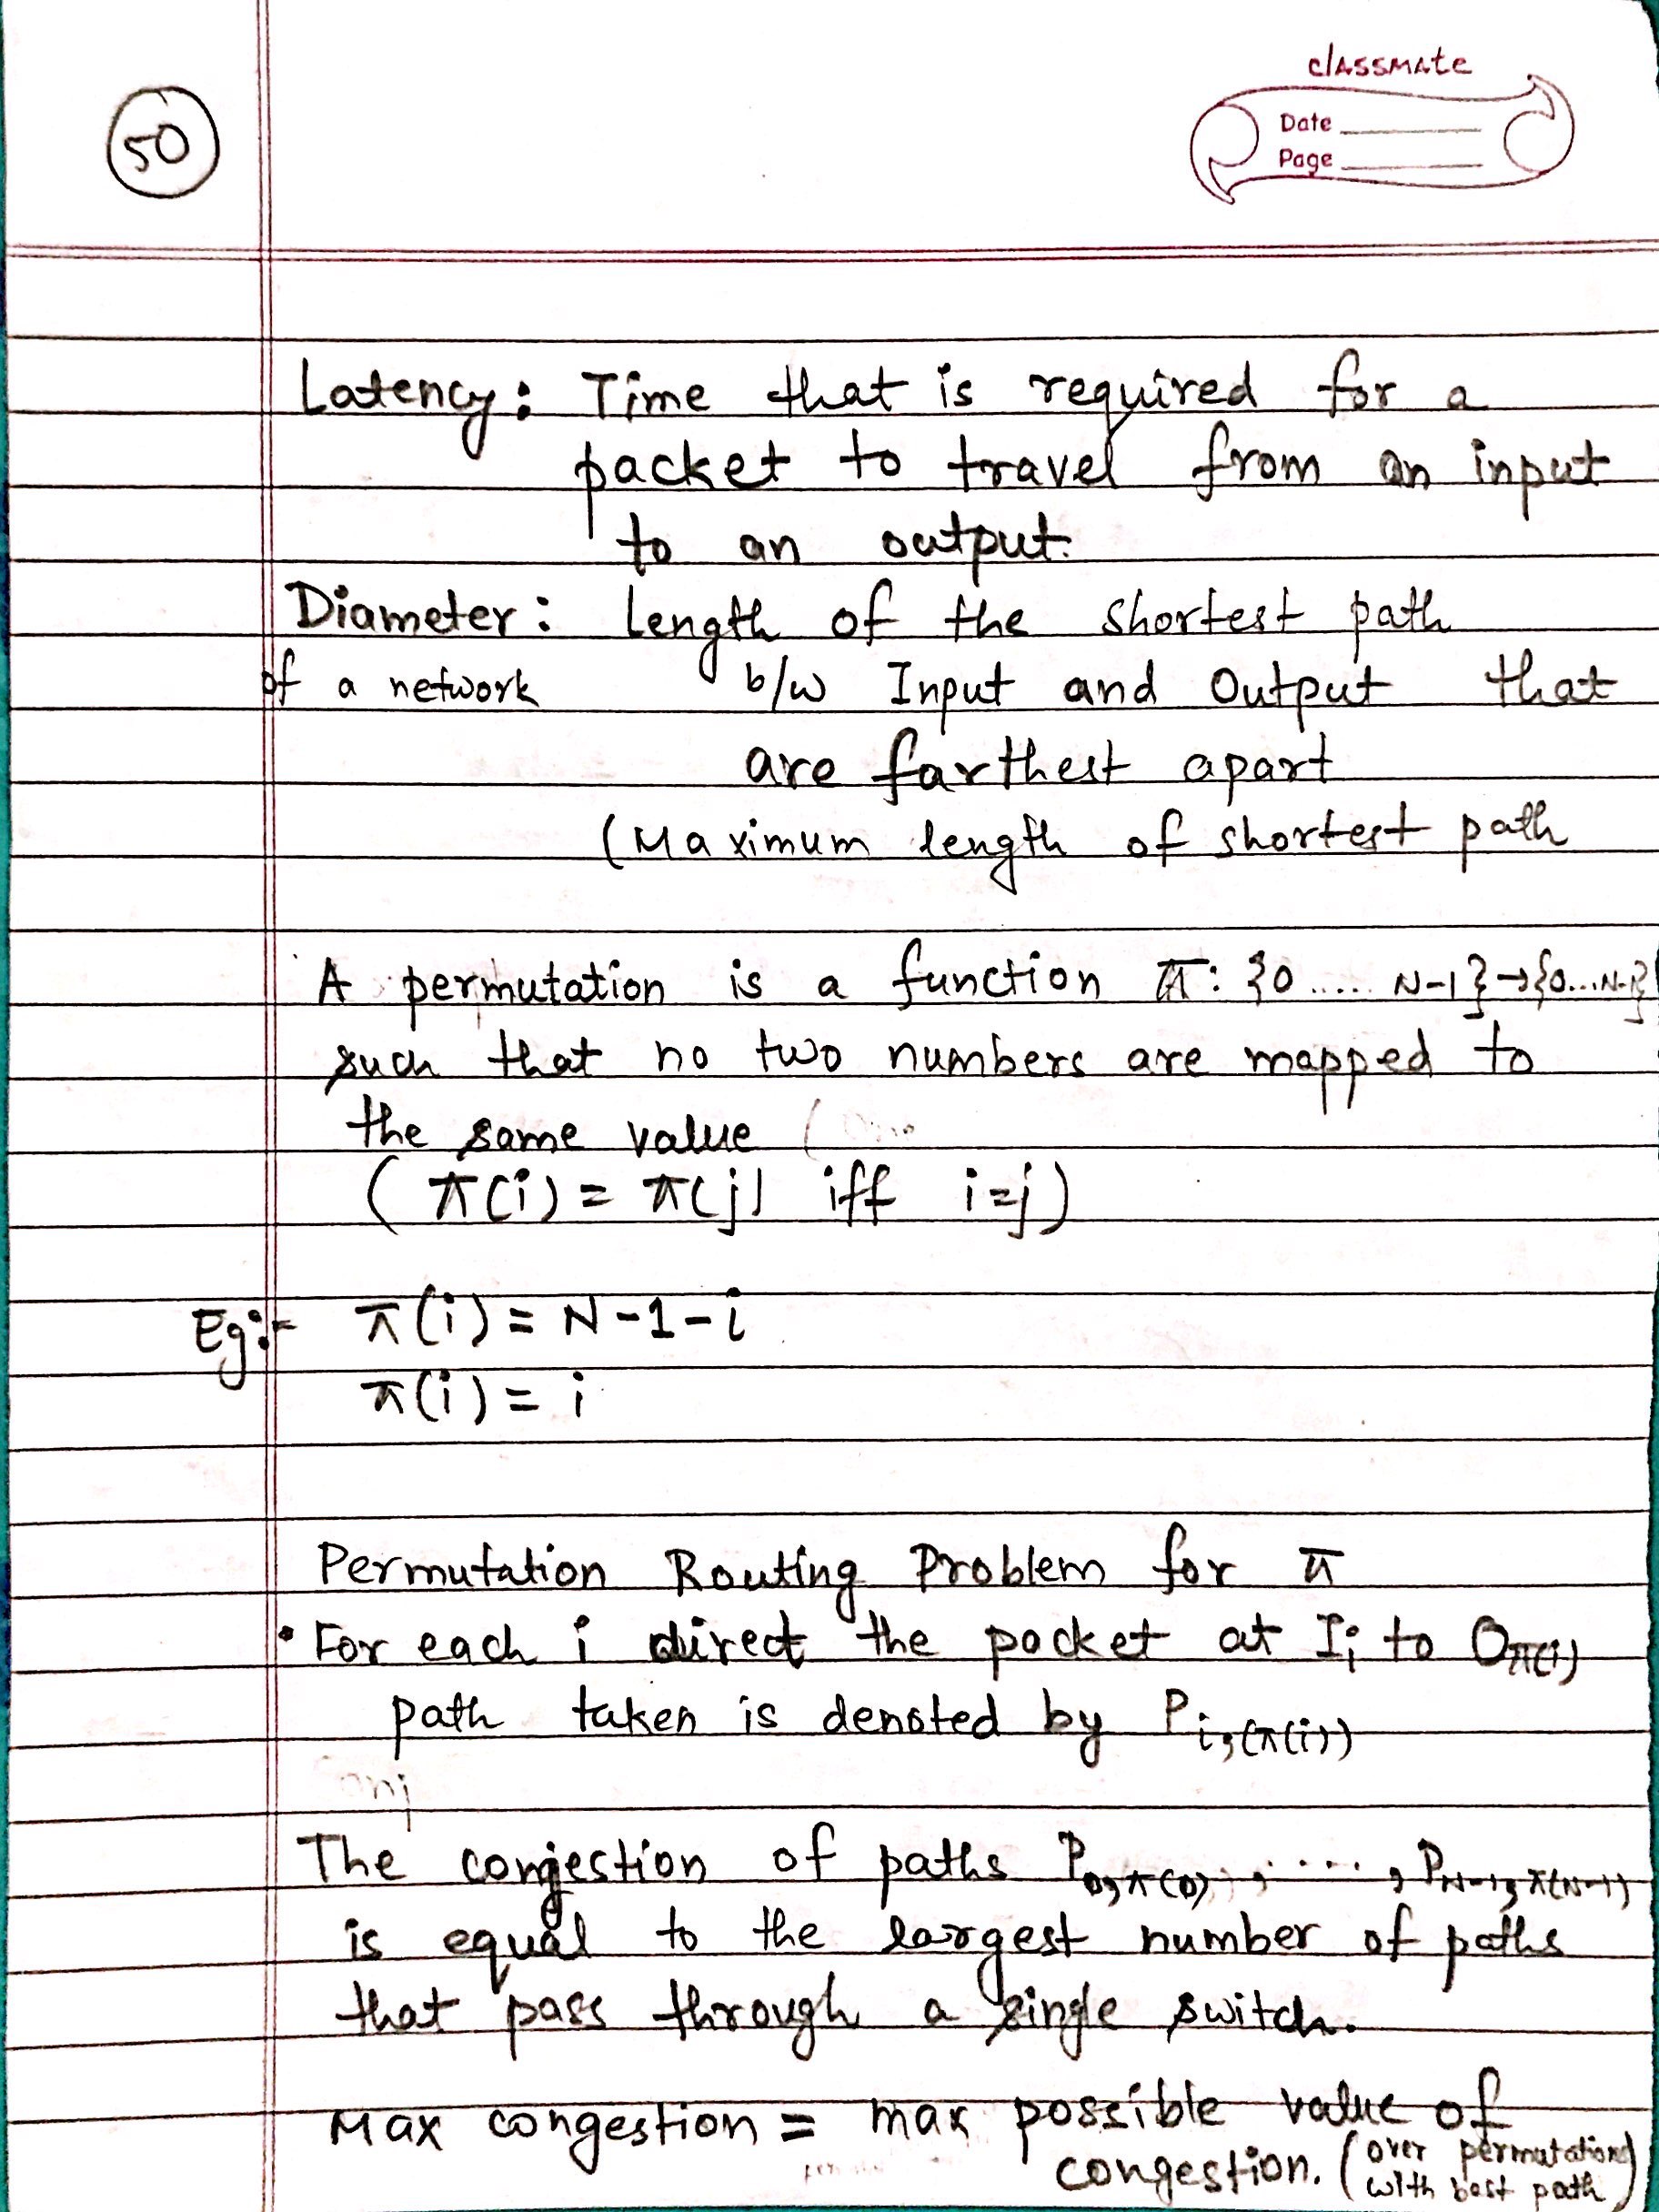 classmate
50
Date
Page
Latency: Time that is required for a
packet to travel from an input
to an output.
Diameter: Length of the shortest path
of a network b/w Input and Output that
are farthest apart
(Maximum length of shortest path
A permutation is a function π: {0 ..... N-1} → {0...N-1}
such that no two numbers are mapped to
the same value
( π(i) = π(j) iff i=j )
Eg:- π(i) = N-1-i
π(i) = i
Permutation Routing Problem for π
• For each i direct the packet at Ii to Oπ(i)
path taken is denoted by Pi,(π(i))
The congestion of paths P0,π(0), ...., PN-1,π(N-1)
is equal to the largest number of paths
that pass through a single switch.
Max congestion = max possible value of
congestion. (over permutations
with best path)